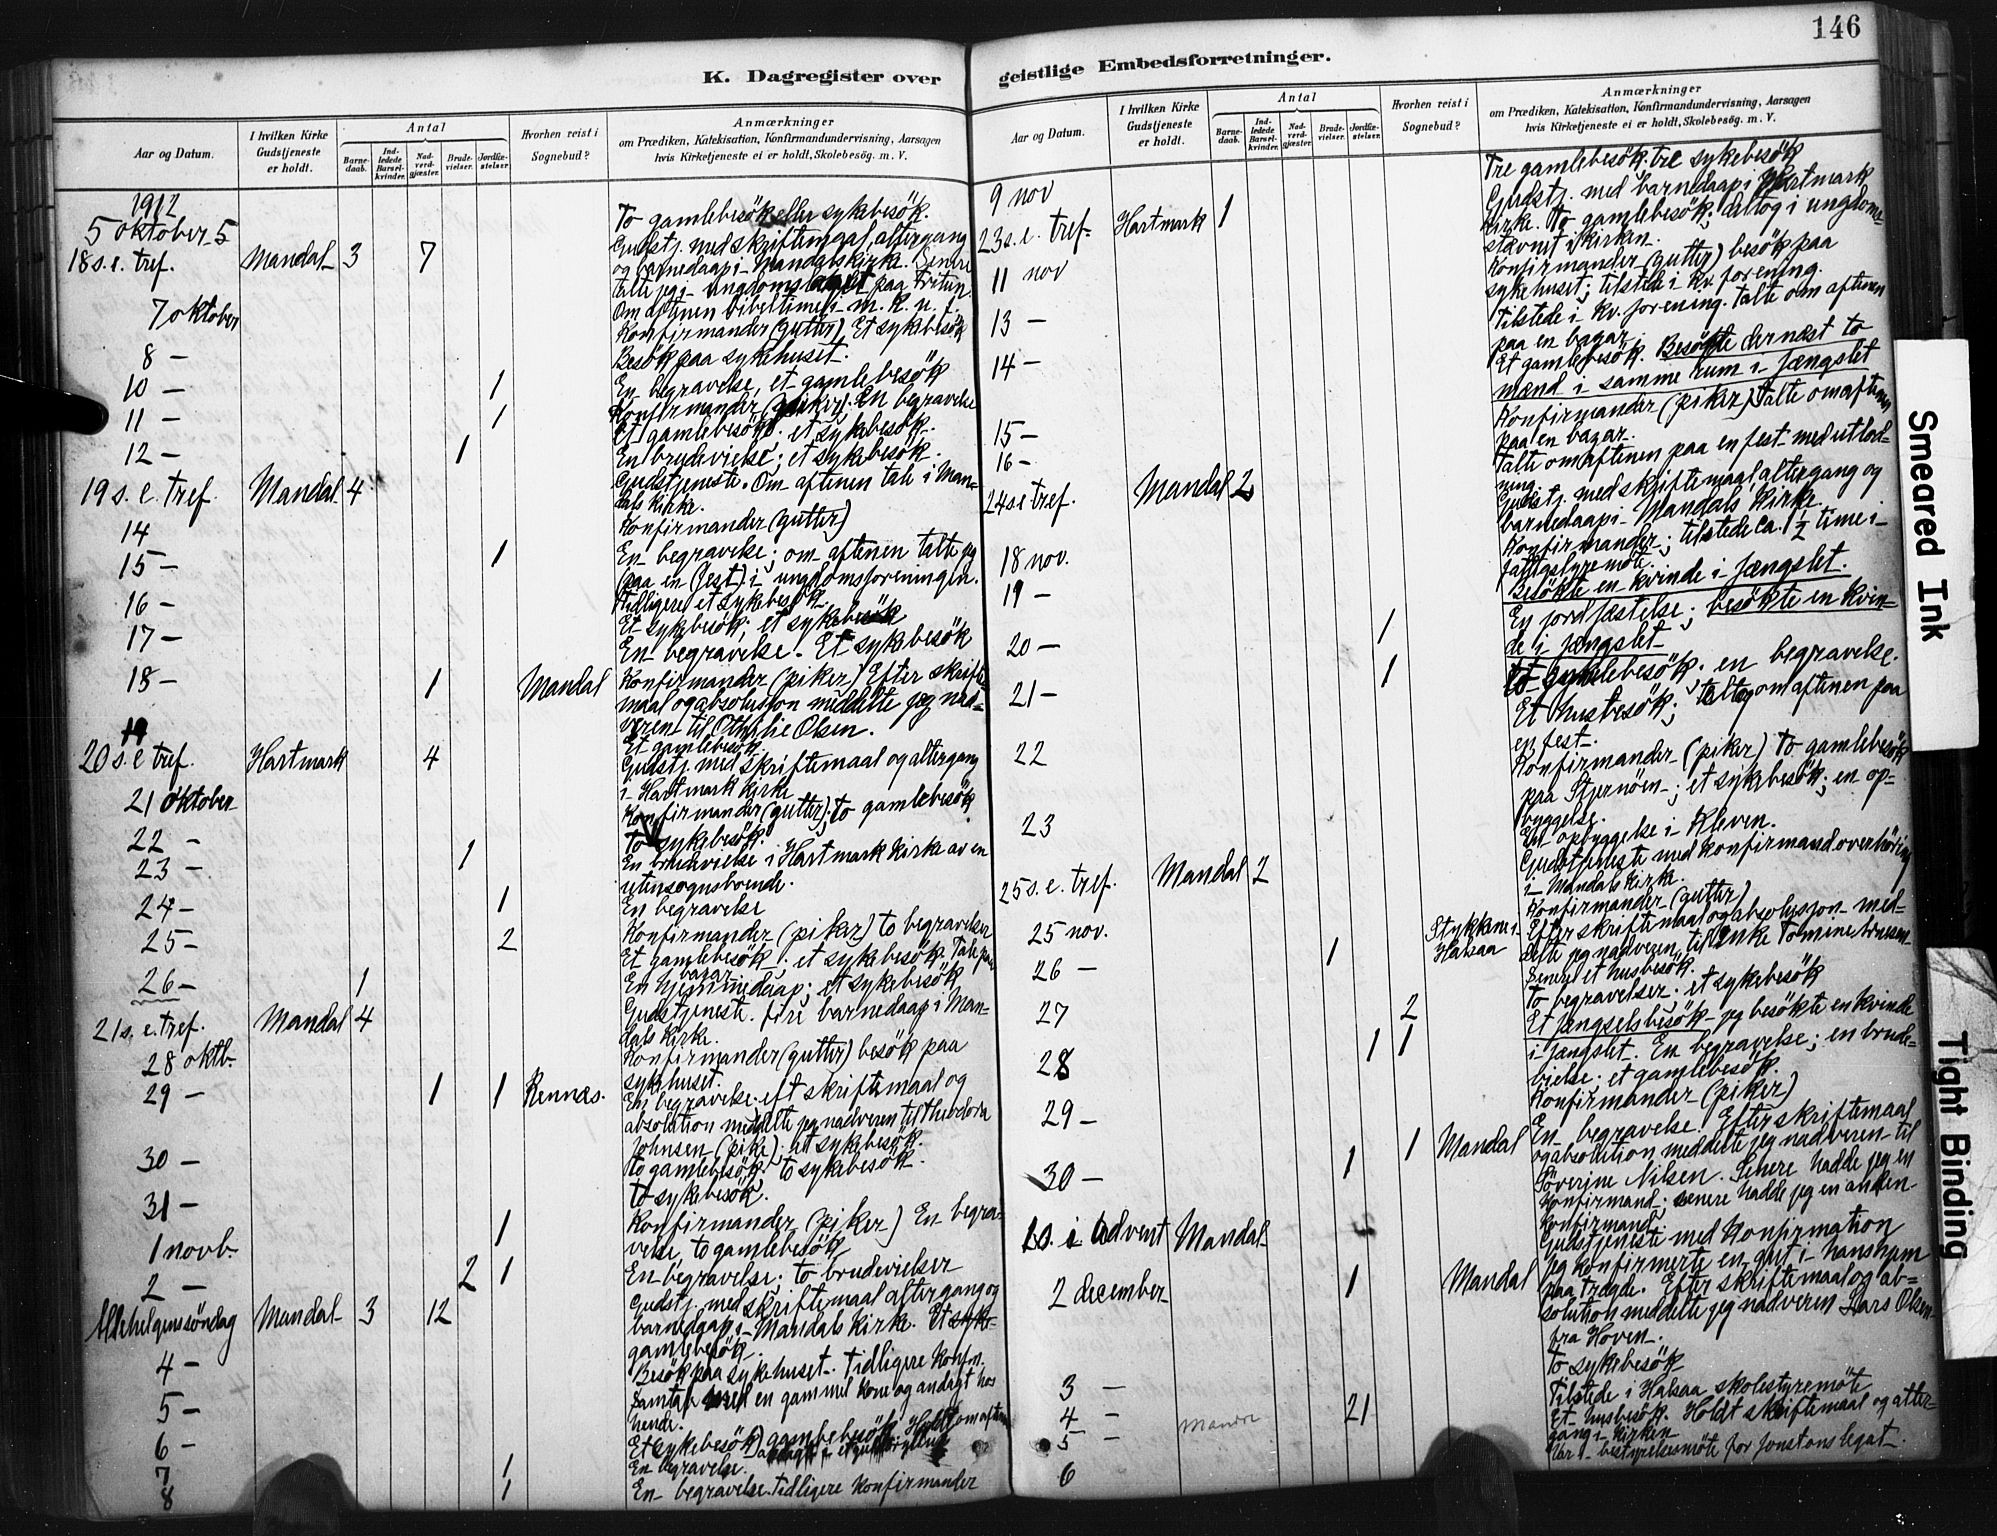 146
K. Dagregister over
geistlige Embedsforretninger.
Aar og Datum.
I hvilken Kirke Gudstjeneste er holdt.
Antal
Barnedaab.
Indledede Barselkvinder.
Nadverdgjæster.
Brudevielser.
Jordfæstelser.
Hvorhen reist i Sognebud?
Anmærkninger
om Prædiken, Katekisation, Konfirmandundervisning, Aarsagen
hvis Kirketjeneste ei er holdt, Skolebesøg. m. V.
1912
5 oktober 5
To gamlebesök eller sykebesök.
18 s. e. tref. Mandal 3 7
Gudstj. med skriftemaal, altergang
og barnedaap i Mandals kirke. Senere
talte jeg i ungdomslaget paa Tritun.
Om aftenen bibeltime i m. k. u. f.
7 oktober
Konfirmander (gutter) Et sykebesök
8 —
Besök paa sykehuset.
10 — 1
En begravelse, et gamlebesök
11 — 1
Konfirmander (piker). En begravelse
Et gamlebesök; et sykebesök.
12 — 1
En brudevielse; et sykebesök.
19 s. e. tref. Mandal 4
Gudstjeneste. Om aftenen tale i Man-
dals kirke.
14
Konfirmander (gutter)
15 — 1
En begravelse; om aftenen talte jeg
(paa en fest) i ungdomsforeningen.
Tidligere et sykebesök
16 —
Et sykebesök; et sykebesök
17 —
En begravelse. Et sykebesök
18 — 1 Mandal
Konfirmander (piker) Efter skrifte-
maal og absolusjon meddelte jeg nad-
veren til Othilie Olsen.
19
Et gamlebesök.
20 s. e. tref. Hartmark 4
Gudstj. med skriftemaal og altergang
i Hartmark kirke
21 oktober
Konfirmander (gutter); to gamlebesök
22 —
To sykebesök.
23 — 1
En brudevielse i Hartmark kirke av en
utensognsboende.
24 — 1
En begravelse
25 — 2
Konfirmander (piker) to begravelser
Et gamlebesök; et sykebesök. Tale paa
bazar
26 — 1
En hjemmedaap; et sykebesök
21 s. e. tref. Mandal 4
Gudstjeneste. fire barnedaap i Man-
dals kirke.
28 oktb.
Konfirmander (gutter) besök paa
sykehuset.
29 — 1 1 Rennæs.
En begravelse; eft skriftemaal og
absolution meddelte jeg nadveren til Theodora
Johnsen (pike); et sykebesök.
30 —
To gamlebesök; to sykebesök.
31 —
To sykebesök.
1 novb. 1
Konfirmander (piker) En begra-
velse, to gamlebesök
2 — 2 1
En begravelse; to brudevielser
Allehelgenssöndag Mandal 3 12
Gudstj. med skriftemaal altergang og
barnedaap i Mandals kirke. Et syke-
gamlebesök.
4 —
Besök paa sykehuset. Tidligere konfm.
5 —
Samtale med en gammel kone og andagt hos
hende.
6 —
Et sykebesök) gamlebesök Holdt om aften
7 1
En begravelse.
8 1
En begravelse. Tidligere konfirmander
Aar og Datum.
I hvilken Kirke Gudstjeneste er holdt.
Antal
Barnedaab.
Indledede Barselkvinder.
Nadverdgjæster.
Brudevielser.
Jordfæstelser.
Hvorhen reist i Sognebud?
Anmærkninger
om Prædiken, Katekisation, Konfirmandundervisning, Aarsagen
hvis Kirketjeneste ei er holdt, Skolebesøg. m. V.
9 nov
Tre gamlebesök; tre sykebesök
23 s. e. tref. Hartmark 1
Gudstj. med barnedaap i Hartmark
kirke. To gamlebesök; deltog i ungdoms-
stevnet i kirken.
11 nov
Konfirmander (gutter) besök paa
sykehuset; tilstede i kv. forening.
13 —
Tilstede i kv. forening. Talte om aftenen
paa en bazar
14 —
Et gamlebesök. Besökte dernæst to
mænd i samme rum i fængslet
15 —
Konfirmander (piker) Talte om aftenen
paa en bazar.
16 —
Talte om aftenen paa en fest med utlod-
ning.
24 s e tref. Mandal 2
Gudstj. med skriftemaal altergang og
barnedaap i Mandals kirke.
18 nov.
Konfirmander; tilstede ca. 1 1/2 time i
fattigstyremöte.
19 —
Besökte en kvinde i fængslet.
20 — 1
En jordfæstelse; besökte en kvin-
de i fængslet
21 — 1
To gamlebesök; en begravelse.
Et husbesök; talte om aftenen paa
en fest.
22
Konfirmander (piker) To gamlebesök
paa Stjernöen; et sykebesök; en op-
byggelse.
23
En opbyggelse i Kleven.
25 s. e. tref. Mandal 2
Gudstjeneste med konfirmandoverhöring
i Mandals kirke.
25 nov. 1 Stykkene i Halsaa
Konfirmander (gutter)
Efter skriftemaal og absolusjon med-
delte jeg nadveren til Enke Tomine
Senere et husbesök.
26 —
27 2
To begravelser; et sykebesök
28 1 1
Et fængselsbesök — jeg besökte en kvinde
i fængslet. En begravelse; en brude-
vielse; et gamlebesök.
29 —
Konfirmander (piker)
30 — 1 1 Mandal
En begravelse. Efter skriftemaal
og absolution meddelte jeg nadveren til
Söverine Nilsen. Senere hadde jeg en
konfirmand; senere hadde jeg en anden
konfirmand.
1 s. i Advent Mandal
Gudstjeneste med Konfirmation
jeg konfirmerte en gut i hans hjem
paa Trægde.
2 december 1 Mandal
Efter skriftemaal og ab-
solution meddelte jeg nadveren Lars Olsen
fra Hoven.
To sykebesök
3 —
Tilstede i Halsaa skolestyremöte
4 — Mandal 21
Et husbesök. Holdt skriftemaal og alter-
gang i kirken
5 —
Var i bestyrelsesmöte for Jonstons legat.
6
Smeared Ink
Tight Binding